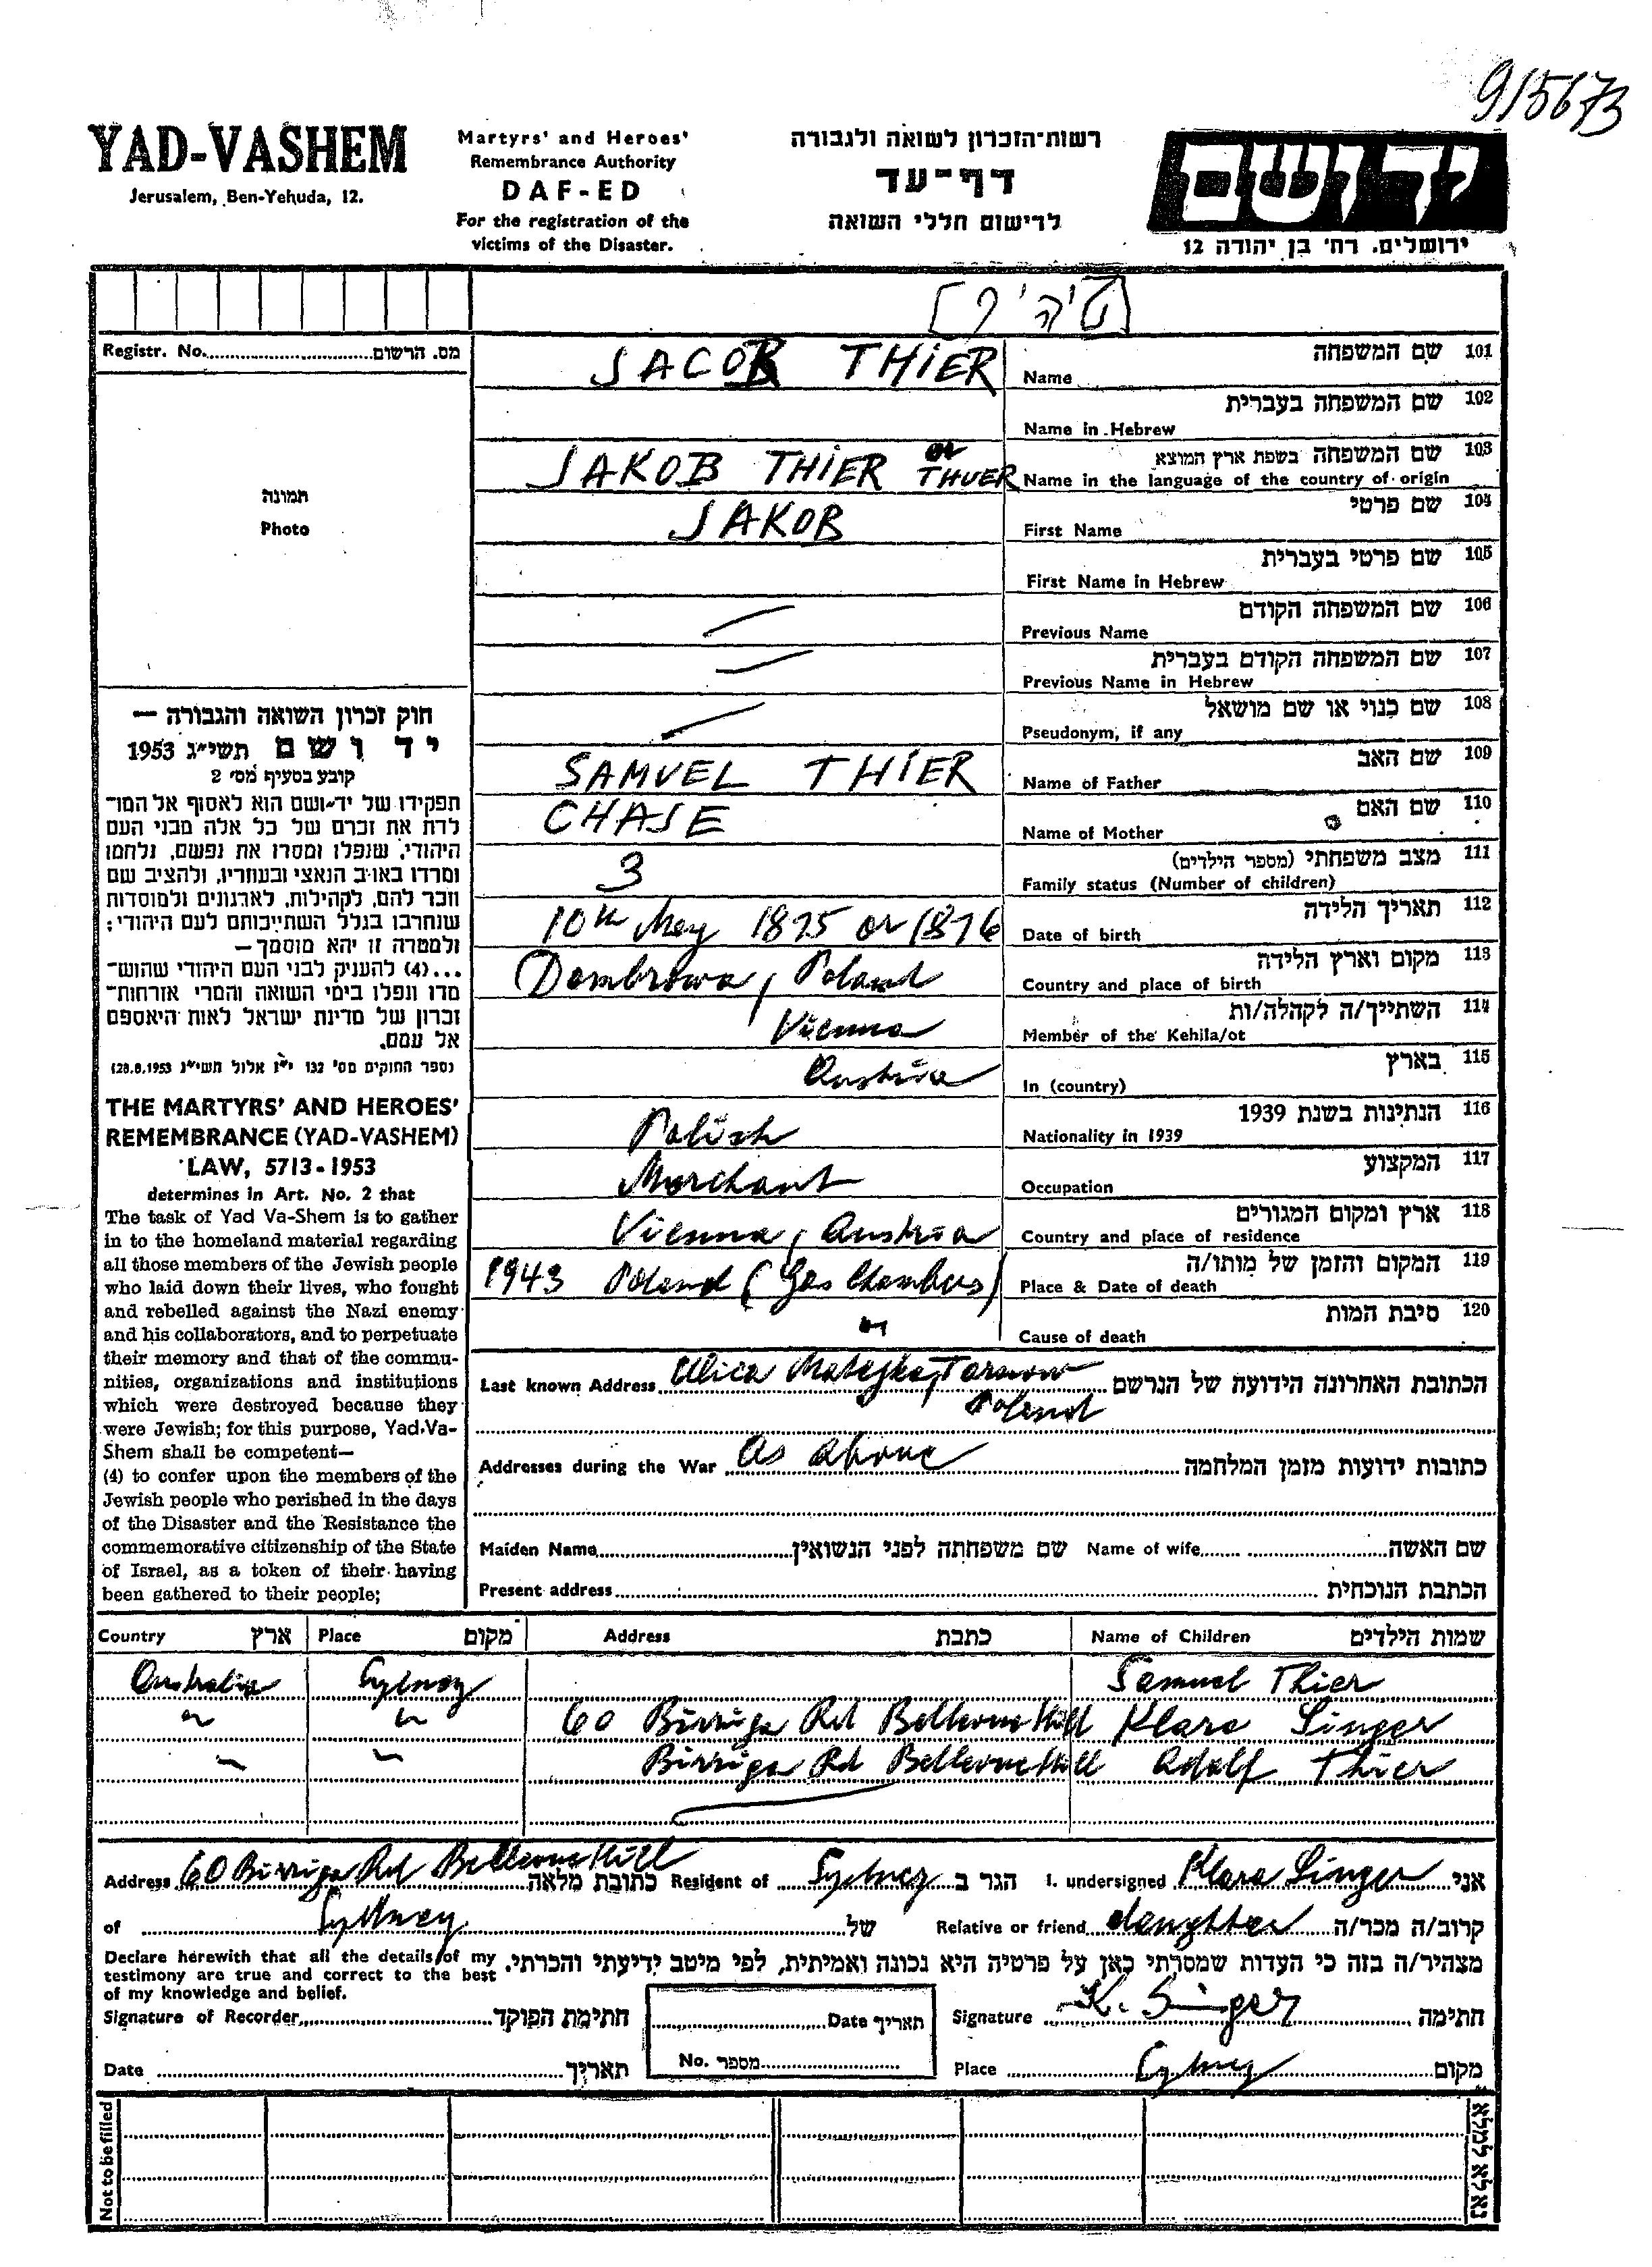 915673
YAD-VASHEM
Jerusalem, Ben-Yehuda, 12.
Martyrs' and Heroes'
Remembrance Authority
DAF-ED
For the registration of the
victims of the Disaster.
רשות-הזכרון לשואה ולגבורה
דף-עד
לרישום חללי השואה
ידושם
ירושלים, רח' בן יהודה 12
Registr. No. מס. הרשום
תמונה
Photo
חוק זכרון השואה והגבורה —
יד ושם תשי"ג 1953
קובע בסעיף מס' 2
תפקידו של יד-ושם הוא לאסוף אל המו־
לדת את זכרם של כל אלה מבני העם
היהודי, שנפלו ומסרו את נפשם, נלחמו
ומרדו באויב הנאצי ובעוזריו, ולהציב שם
וזכר להם, לקהילות, לארגונים ולמוסדות
שנחרבו בגלל השתייכותם לעם היהודי;
ולמטרה זו יהא מוסמך—
...(4) להעניק לבני העם היהודי שהוש־
מדו ונפלו בימי השואה והמרי אזרחות־
זכרון של מדינת ישראל לאות היאספם
אל עמם.
(ספר החוקים מס' 132 י"ז אלול תשי"ג 28.8.1953)
THE MARTYRS' AND HEROES'
REMEMBRANCE (YAD-VASHEM)
LAW, 5713-1953
determines in Art. No. 2 that
The task of Yad Va-Shem is to gather
in to the homeland material regarding
all those members of the Jewish people
who laid down their lives, who fought
and rebelled against the Nazi enemy
and his collaborators, and to perpetuate
their memory and that of the commu-
nities, organizations and institutions
which were destroyed because they
were Jewish; for this purpose, Yad-Va-
Shem shall be competent—
(4) to confer upon the members of the
Jewish people who perished in the days
of the Disaster and the Resistance the
commemorative citizenship of the State
of Israel, as a token of their having
been gathered to their people;
JACOB THIER Name שם המשפחה 101
Name in Hebrew שם המשפחה בעברית 102
JAKOB THIER or THUER Name in the language of the country of origin שם המשפחה בשפת ארץ המוצא 103
JAKOB First Name שם פרטי 104
First Name in Hebrew שם פרטי בעברית 105
Previous Name שם המשפחה הקודם 106
Previous Name in Hebrew שם המשפחה הקודם בעברית 107
Pseudonym, if any שם כנוי או שם מושאל 108
SAMUEL THIER Name of Father שם האב 109
CHAJE Name of Mother שם האם 110
3 Family status (Number of children) מצב משפחתי (מספר הילדים) 111
10th May 1875 or 1876 Date of birth תאריך הלידה 112
Dombrowa, Poland Country and place of birth מקום וארץ הלידה 113
Vienna Member of the Kehila/ot השתייך/ה לקהלה/ות 114
Austria In (country) בארץ 115
Polish Nationality in 1939 הנתינות בשנת 1939 116
Merchant Occupation המקצוע 117
Vienna, Austria Country and place of residence ארץ ומקום המגורים 118
1943 Poland (Gas Chambers) Place & Date of death המקום והזמן של מותו/ה 119
Cause of death סיבת המות 120
Last known Address Ulica Matejka, Tarnow הכתובת האחרונה הידועה של הנרשם
Poland
Addresses during the War As above כתובות ידועות מזמן המלחמה
Maiden Name שם משפחתה לפני הנשואין Name of wife שם האשה
Present address הכתבת הנוכחית
Country ארץ Place מקום Address כתבת Name of Children שמות הילדים
Australia Sydney Samuel Thier
" " 60 Birriga Rd Bellevue Hill Klara Singer
" " Birriga Rd Bellevue Hill Adolf Thier
Address 60 Birriga Rd Bellevue Hill כתובת מלאה Resident of Sydney הגר ב I. undersigned Klara Singer אני
of Sydney של Relative or friend daughter קרוב/ה מכר/ה
Declare herewith that all the details of my
testimony are true and correct to the best
of my knowledge and belief.
מצהיר/ה בזה כי העדות שמסרתי כאן על פרטיה היא נכונה ואמיתית, לפי מיטב ידיעתי והכרתי.
Signature of Recorder חתימת הפוקד Date תאריך Signature K. Singer חתימה
Date תאריך No. מספר Place Sydney מקום
Not to be filled נא לא למלא